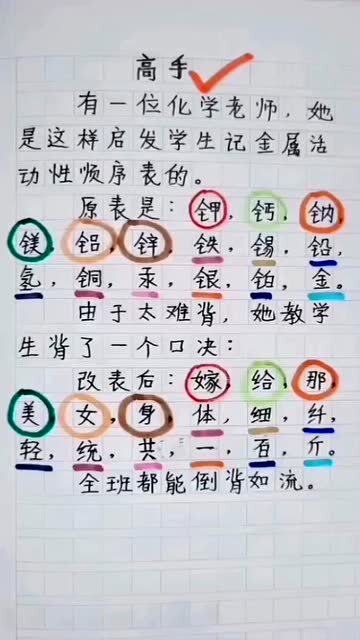 高手
有一位化学老师，她
是这样启发学生记金属活
动性顺序表的。
原表是：钾，钙，钠，
镁，铝，锌，铁，锡，铅，
氢，铜，汞，银，铂，金。
由于太难背，她教学
生背了一个口决：
改表后：嫁，给，那，
美，女，身，体，细，纤，
轻，统，共，一，百，斤。
全班都能倒背如流。